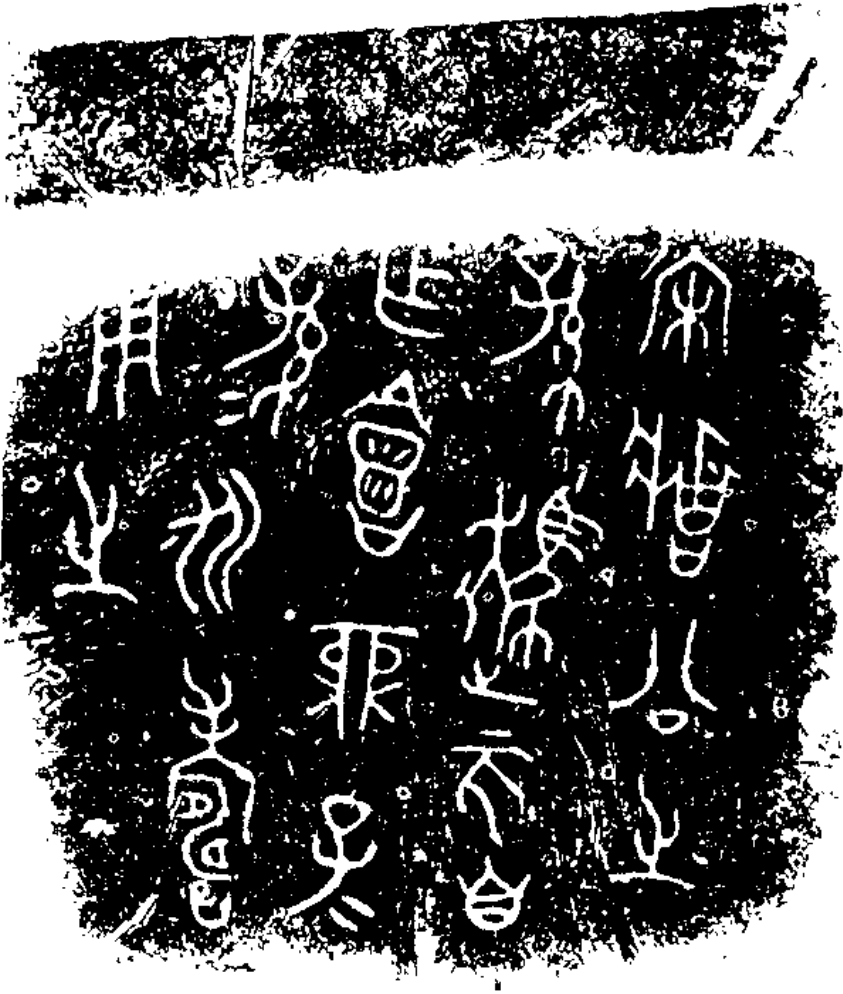 宋莊公之
孫趨亥自
乍會鼎子=
孫=永壽
用之